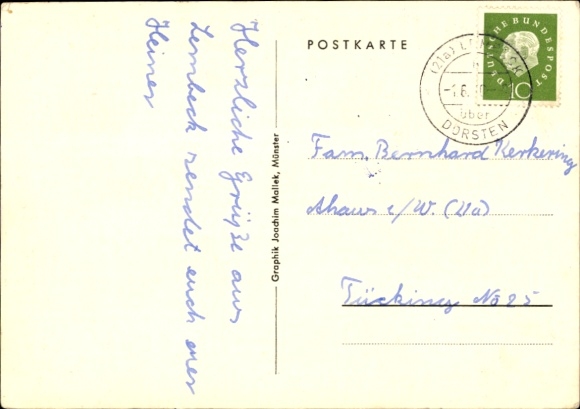 Herzliche Grüße aus
Lembeck sendet euch euer
Heiner
Graphik Joachim Mallek, Münster
POSTKARTE
DEUTSCHE BUNDESPOST
10
(21a) LEMBECK
über
DORSTEN
Fam. Bernhard Kerkering
Ahaus i/W. (21a)
Tücking No 25